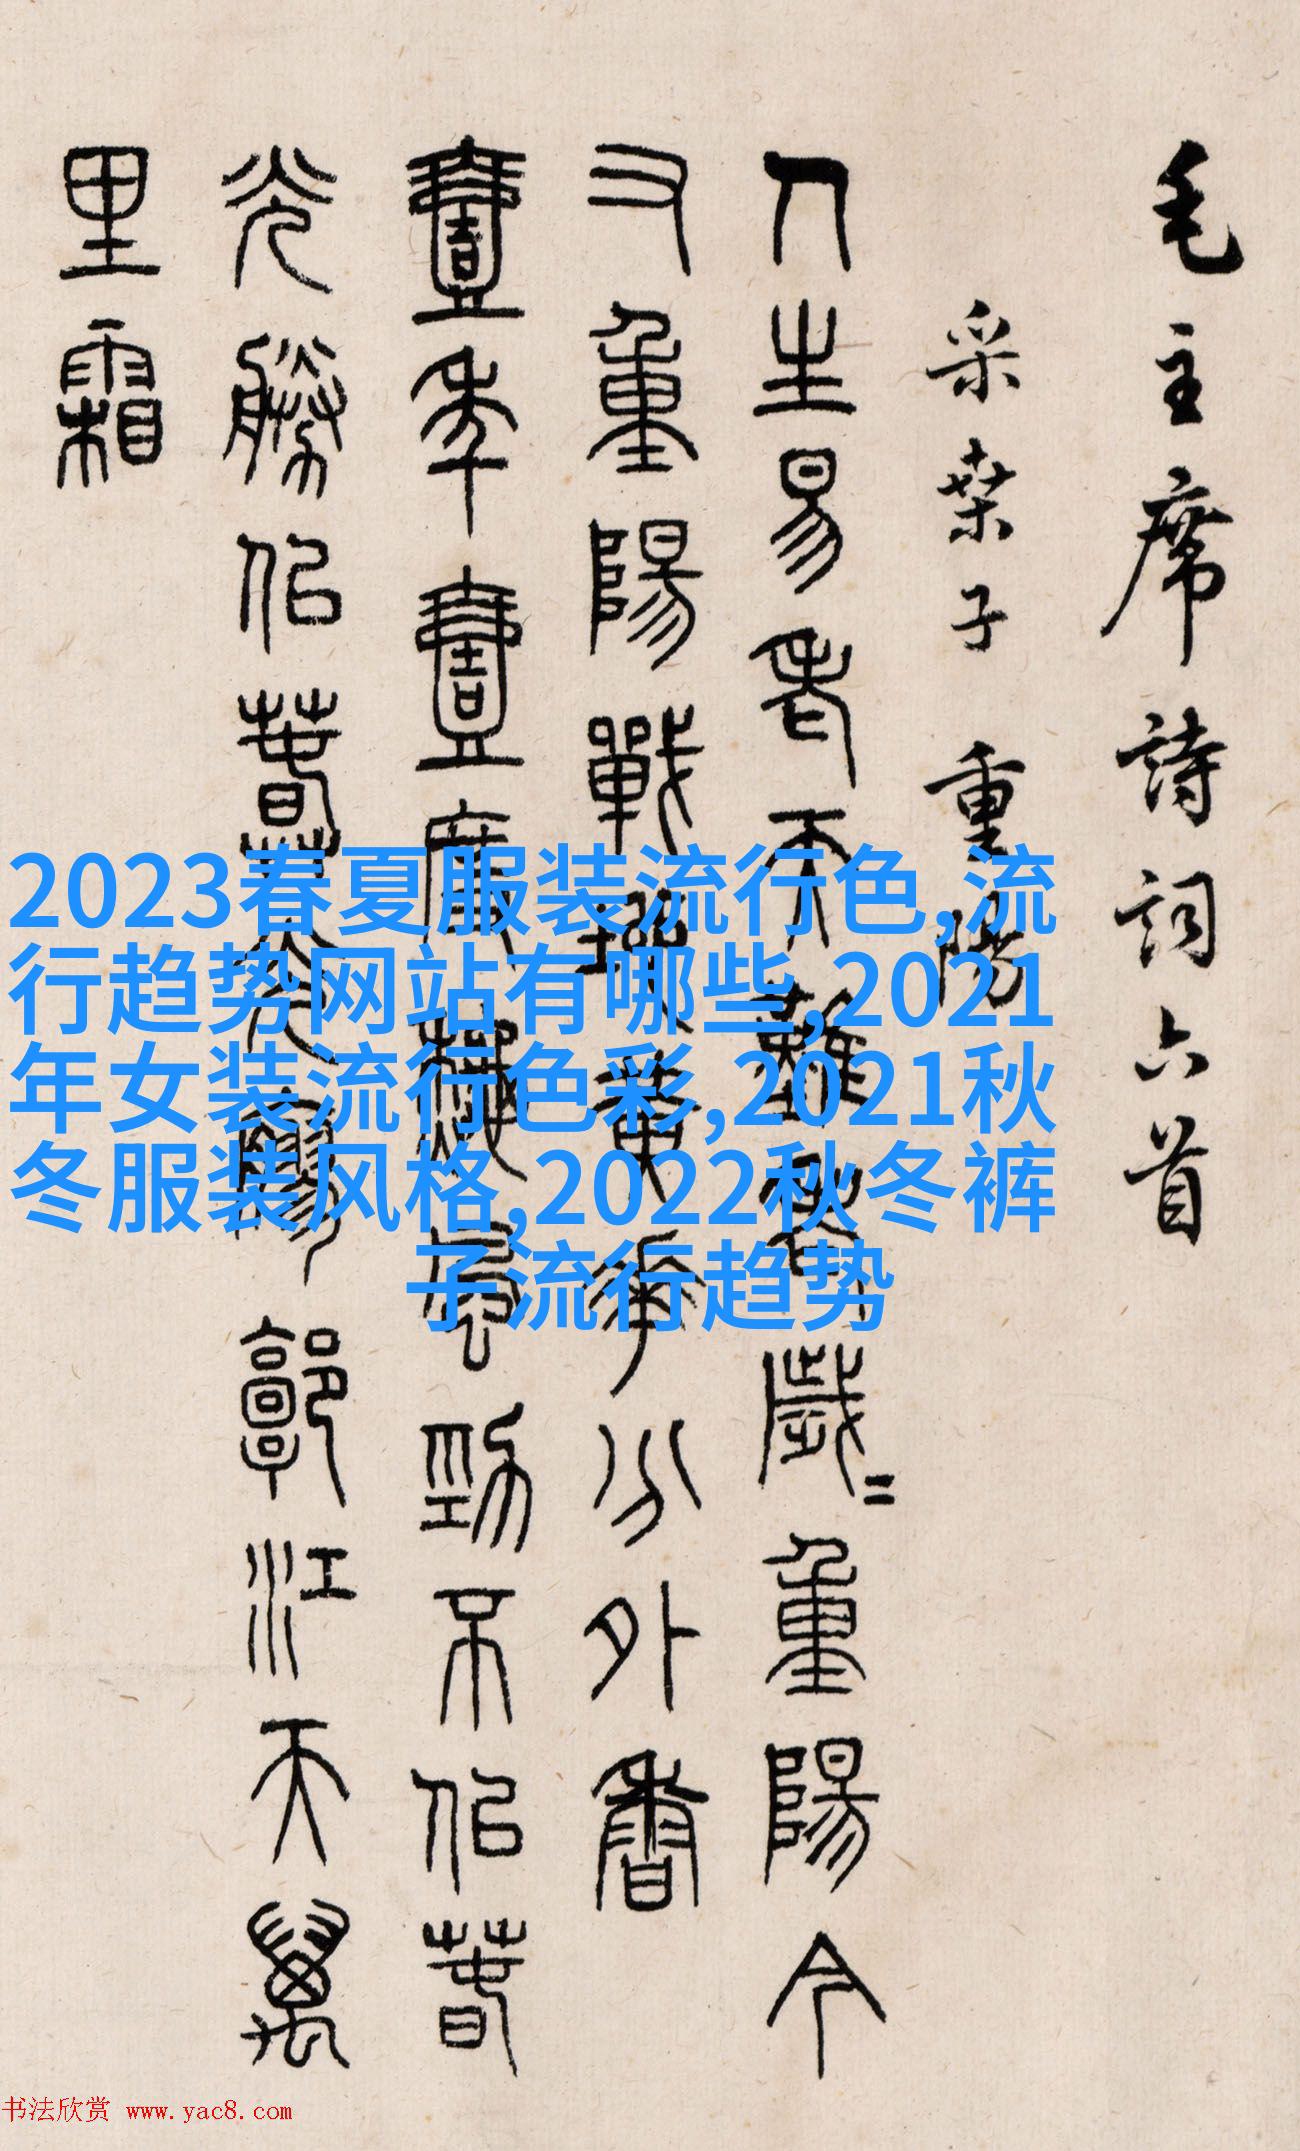 毛主席詩詞六首
采桑子 重陽
人生易老天難老歲〻重陽今
又重陽戰地黃華分外香
壹年壹度秋風勁不似春
光勝似春光寥郭江天萬
里霜
2023春夏服装流行色,流
行趋势网站有哪些,2021
年女装流行色彩,2021秋
冬服装风格,2022秋冬裤
子流行趋势
书法欣赏 www.yac8.com